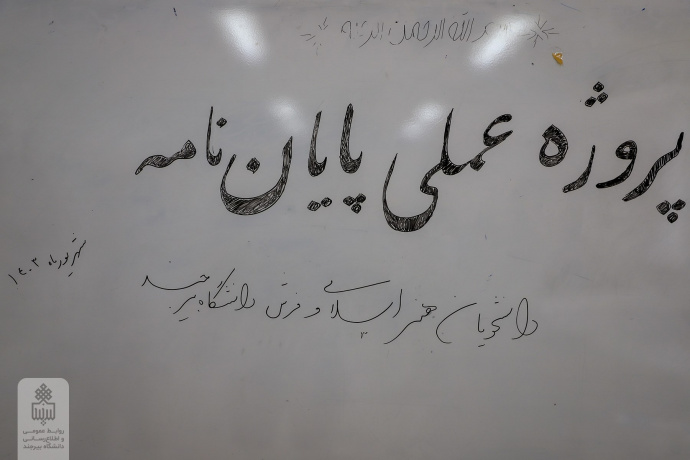 بسم الله الرحمن الرحیم
پروژه عملی پایان نامه
دانشجویان هنر اسلامی و فرش دانشگاه بیرجند
شهریور ماه ۱۴۰۳
روابط عمومی
و اطلاع‌رسانی
دانشگاه بیرجند